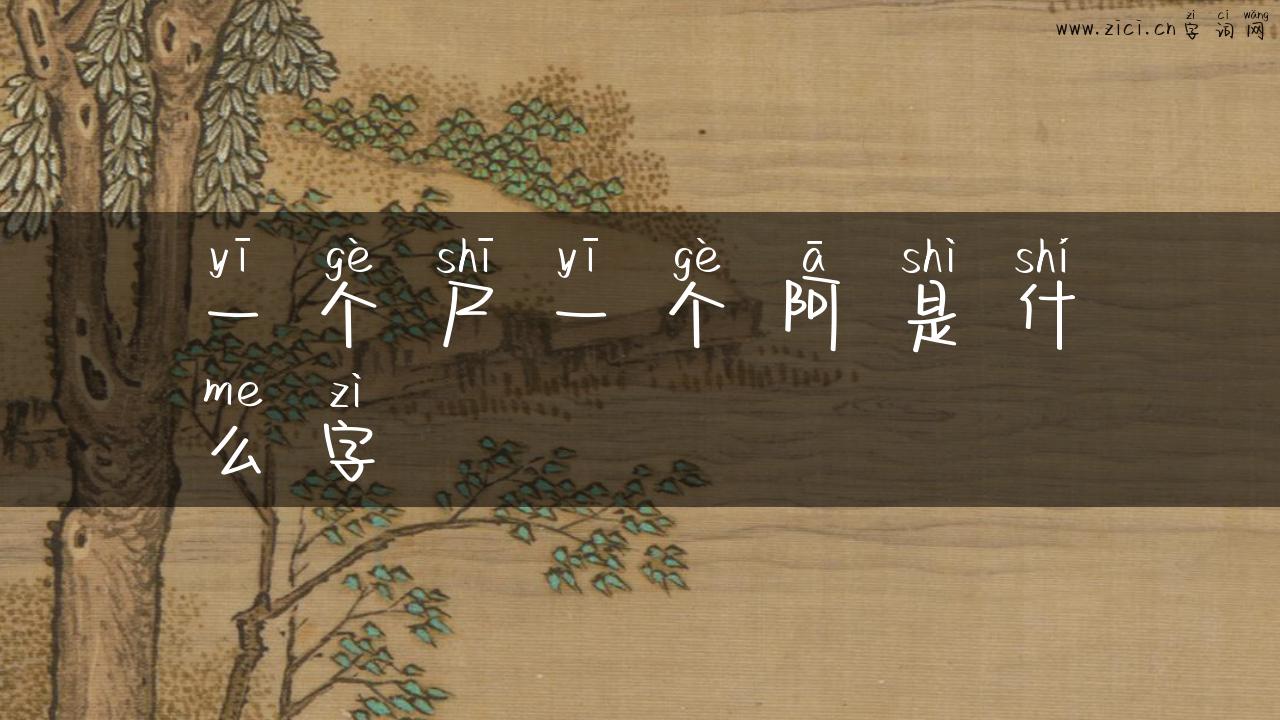 zì cí wǎng
www.zici.cn 字词网
yī gè shī yī gè ā shì shí
一个尸一个阿是什
me zì
么字